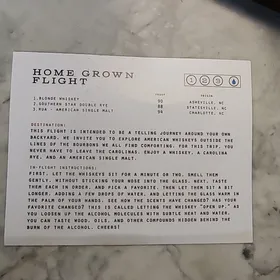 HOME GROWN
FLIGHT
1 2 3
PROOF ORIGIN
1. BLONDE WHISKEY ASHEVILLE, NC
2. SOUTHERN STAR DOUBLE RYE 88 STATESVILLE, NC
3. RUA - AMERICAN SINGLE MALT CHARLOTTE, NC
DESTINATION:
THIS FLIGHT IS INTENDED TO BE A TELLING JOURNEY AROUND YOUR OWN
BACKYARD. WE INVITE YOU TO EXPLORE AMERICAN WHISKEYS OUTSIDE THE
LINES OF THE BOURBONS WE ALL FIND COMFORTING. FOR THIS TRIP, YOU
NEVER HAVE TO LEAVE THE CAROLINAS. ENJOY A WHISKEY, A CAROLINA
RYE, AND AN AMERICAN SINGLE MALT.
IN-FLIGHT INSTRUCTIONS:
FIRST, LET THE WHISKEYS SIT FOR A MINUTE OR TWO. SMELL THEM
GENTLY, WITHOUT STICKING YOUR NOSE INTO THE GLASS. NEXT, TASTE
THEM EACH IN ORDER, AND PICK A FAVORITE. THEN LET THEM SIT A BIT
LONGER, ADDING A FEW DROPS OF WATER, AND LETTING THE GLASS WARM IN
THE PALM OF YOUR HANDS. SEE HOW THE SCENTS HAVE CHANGED? HAS YOUR
FAVORITE CHANGED? THIS IS CALLED LETTING THE WHISKEY "OPEN UP," AS
YOU LOOSEN UP THE ALCOHOL MOLECULES WITH SUBTLE HEAT AND WATER.
YOU CAN TASTE WOOD, OILS, AND OTHER COMPOUNDS HIDDEN BEHIND THE
BURN OF THE ALCOHOL. CHEERS!